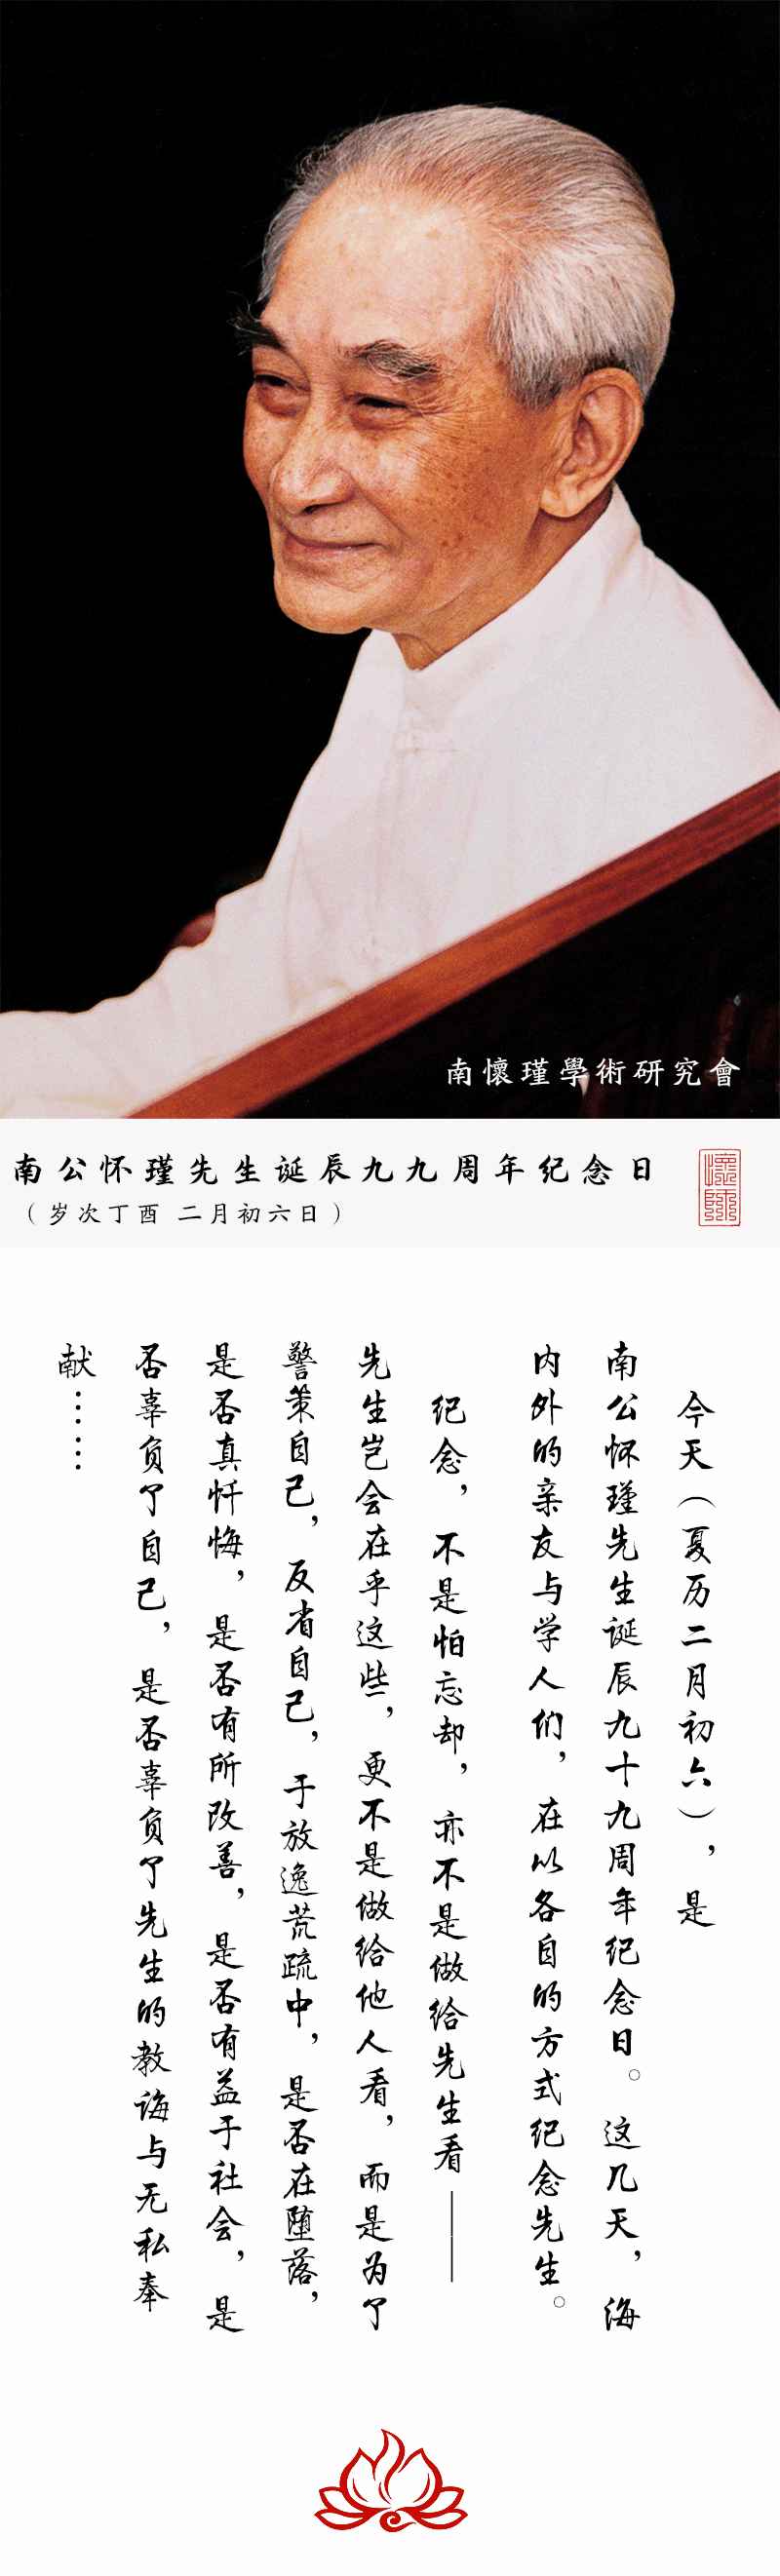 南懷瑾學術研究會
南公怀瑾先生诞辰九九周年纪念日
（岁次丁酉 二月初六日）
今天（夏历二月初六），是
南公怀瑾先生诞辰九十九周年纪念日。这几天，海
内外的亲友与学人们，在以各自的方式纪念先生。
纪念，不是怕忘却，亦不是做给先生看——
先生岂会在乎这些，更不是做给他人看，而是为了
警策自己，反省自己，于放逸荒疏中，是否在堕落，
是否真忏悔，是否有所改善，是否有益于社会，是
否辜负了自己，是否辜负了先生的教诲与无私奉
献……